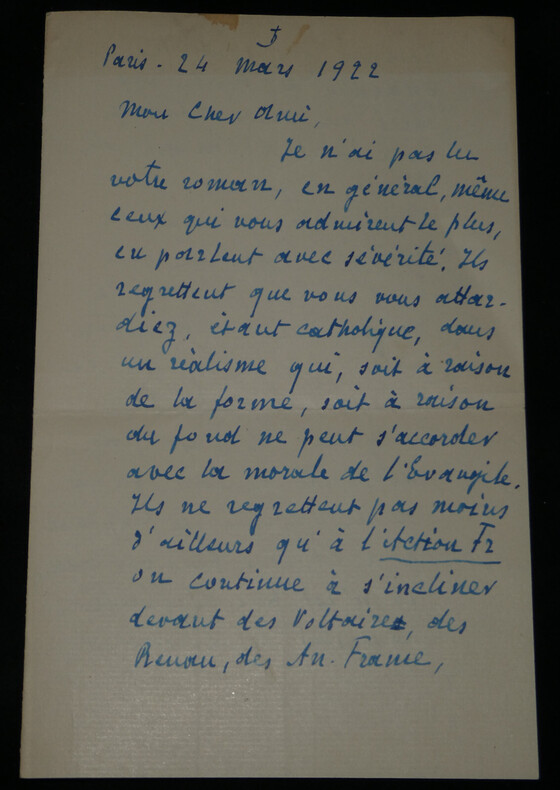 Paris - 24 Mars 1922
Mon cher Ami,
Je n'ai pas lu
votre roman, en général, même
ceux qui vous admirent le plus,
en parlent avec sévérité. Ils
regrettent que vous vous attar-
diez, étant catholique, dans
un réalisme qui, soit à raison
de la forme, soit à raison
du fond ne peut s'accorder
avec la morale de l'Evangile.
Ils ne regrettent pas moins
d'ailleurs qu'à l'Action Fr
on continue à s'incliner
devant des Voltaire, des
Renan, des An. France,